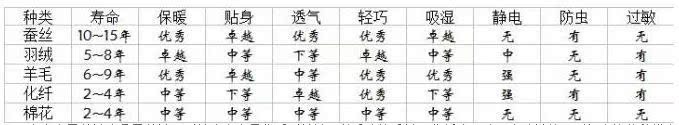 种类 寿命 保暖 贴身 透气 轻巧 吸湿 静电 防虫 过敏
蚕丝 10~15年 优秀 卓越 优秀 优秀 卓越 无 有 无
羽绒 5~8年 卓越 中等 下等 卓越 中等 中 无 有
羊毛 6~9年 优秀 卓越 中等 优秀 优秀 强 无 有
化纤 2~4年 中等 下等 卓越 优秀 下等 强 有 有
棉花 2~4年 中等 中等 中等 中等 中等 无 无 无